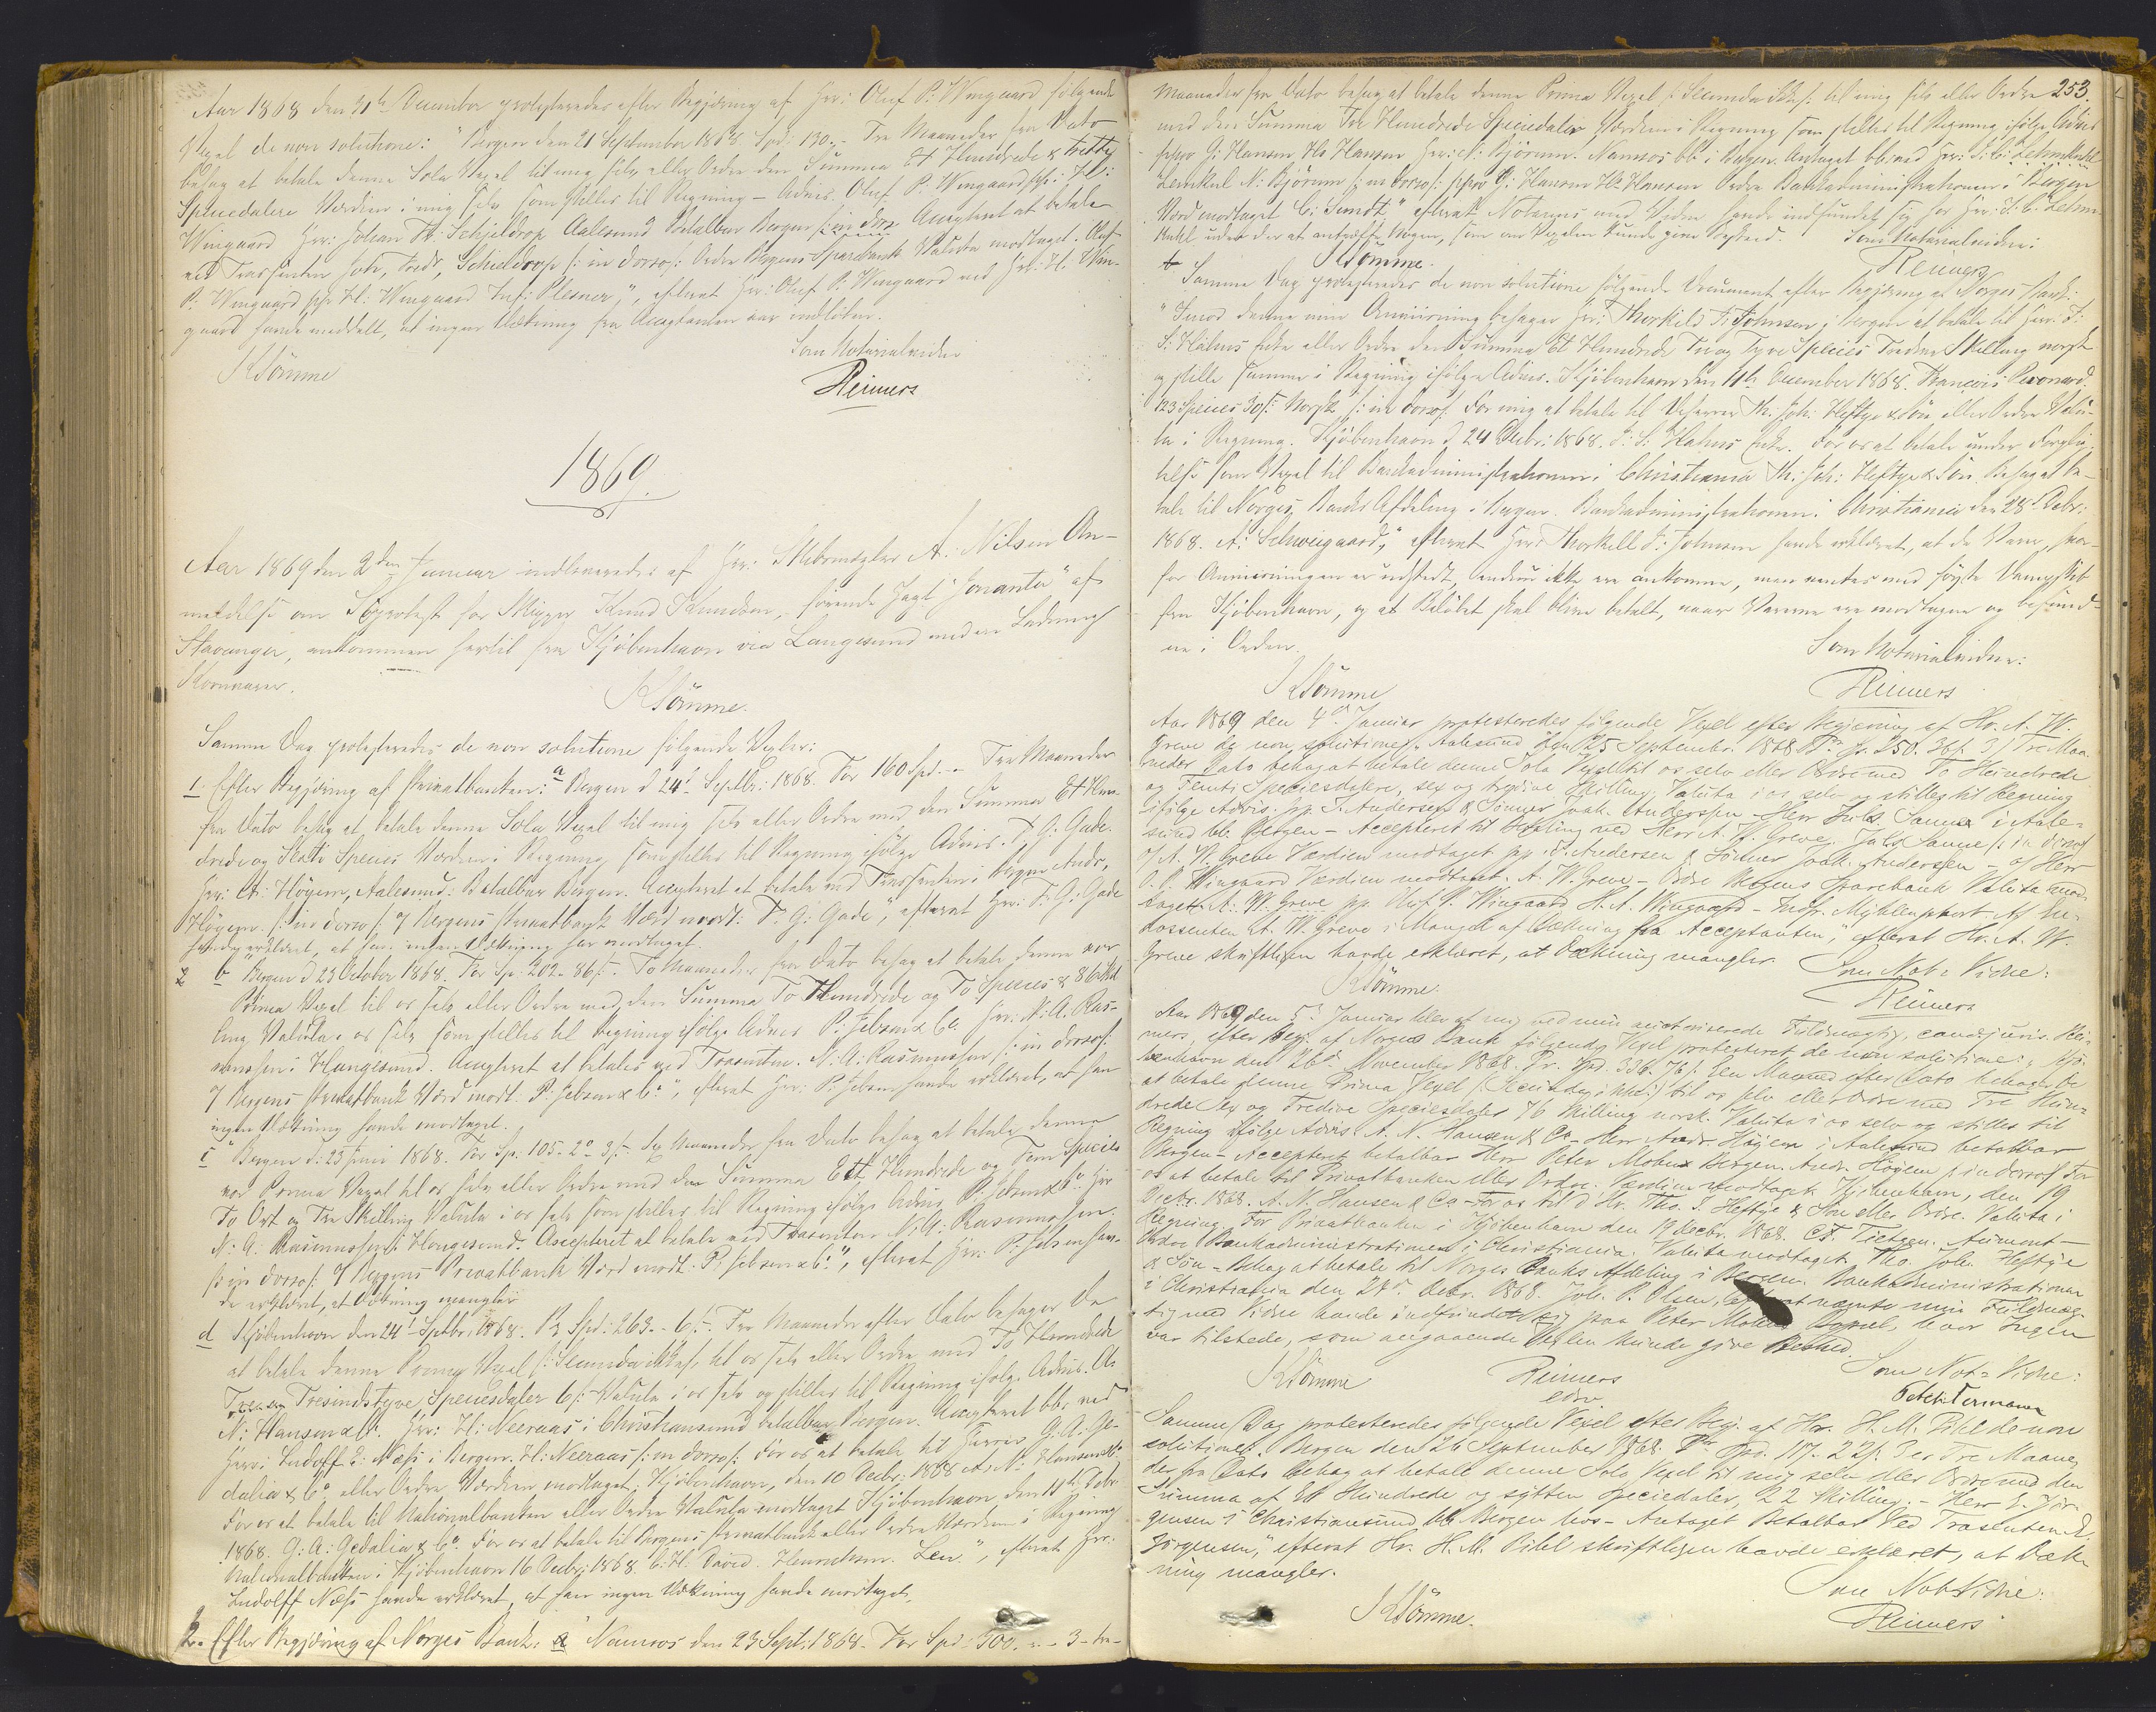 Aar 1868 den 31te December protesteredes efter Begjæring af Hrr: Oluf P: Wingaard følgende
Vexel de non solutione: "Bergen den 21 September 1868. Spd: 130.- Tre Maaneder fra Dato
behag at betale denne Sola Vexel til mig selv eller Ordre den Summa Et Hundrede & tretty
Speciedalere Værdien i mig selv som stilles til Regning - Advis. Oluf P. Wingaard pp: H:
Wingaard Hrr: Johan Fr. Schjeldrop Aalesund Betalbar Bergen /: in dorso Accepteret at betale
ved Trassenten Joh, Fredr, Schieldrop /: in dorso/: Ordre Bergens Sparebank Valuta modtaget. Oluf
P: Wingaard pp H: Wingaard Inf: Plesner", efterat Hrr: Oluf P: Wingaard ved Hrr: H. Win-
gaard havde meddelt, at ingen Dækning fra Acceptanten var indløben.
Som Notarialvidne
KSömme
Reimers
1869.
Aar 1869 den 2den Januar indleveredes af Hrr: Skibsmægler A: Nilsen An-
meldelse om Søprotest for Skipper Knud Knudsen, førende Jagt "Jonanta" af
Stavanger, ankommen hertil fra Kjøbenhavn via Langesund med en Ladning
Kornvarer.
KSömme.
Samme Dag protesteredes de non solutione følgende Vexler:
1. Efter Begjæring af Privatbanken: a Bergen d 24d Septbr: 1868. For 160 Spd. - Tre Maaneder
fra Dato behag at betale denne Sola Vexel til mig selv eller Ordre med den Summa Et Hun-
drede og Sexti Species Værdien i Regning som stilles til Regning ifølge Advis. F. G: Gade.
Hrr: A: Höyem, Aalesund: Betalbar Bergen. Accepteret at betale ved Trassenten i Bergen Andr,
Höyem. /: in dorso /: o/ Bergens Privatbank Værd modt: F: G: Gade", efterat Hrr: F: G: Gade
havde erklæret, at han ingen Dækning har modtaget.
2 b "Bergen d 23 October 1868. For Sp: 202 - 86 ß. To Maaneder fra Dato behag at betale denne vor
Prima Vexel til os selv eller Ordre med den Summa To Hundrede og To Species & 86 Skil
ling Valuta i os selv som stilles til Regning ifølge Advis P: Jebsen & Co. Hrr: N: A. Ras-
mussen i Haugesund. Accepteret at betales ved Trasenten. N: A: Rasmussen /: in dorso/:
o/ Bergens Privatbank Værd modt. P: Jebsen & Co:", efterat Hrr: P: Jebsen havde erklæret, at han
ingen Dækning havde modtaget.
c Bergen d: 23 Juni 1868. For Sp. 105 - 2o 3 ß. Sex Maaneder fra Dato behag at betale denne
vor Prima Vexel til os selv eller Ordre med den Summa Ett Hundrede og Fem Species
To Ort og Tre Skilling Valuta i os selv som stilles til Regning ifølge Advis P: Jebsen & Co: Hrr
N: A: Rasmussen i Haugesund. Accepteret at betale ved Trasenten. N: A: Rasmussen.
/: in dorso/: o/ Bergens Privatbank Værd modt. P: Jebsen & Co:", efterat Hrr: P: Jebsen hav-
de erklæret, at Dækning mangler
d Kjøbenhavn den 24d Septbr: 1868. Pr Spd: 263 - 6 ß. Tre Maaneder efter Dato behager De
at betale denne Prima Vexel /: Secunda ikke /: til os selv eller Ordre med To Hundrede
Tre og Tresindstyve Speciesdaler 6 ß: Valuta i os selv og stilles til Regning ifølge Advis. A.
N: Hansen & Co. Hrr: H: Neeraas i Christiansund betalbar Bergen. Accepteret bb: ved
Herr: Ludolff E: Næss i Bergen. H: Neeraas /: in dorso /: For os at betale til Herrer G: A: Ge-
dalia & Co. eller Ordre Værdien modtaget. Kjøbenhavn, den 10 Decbr: 1868 A: N: Hansen & Co
For os at betale til Nationalbanken eller Ordre Valuta modtaget Kjøbenhavn den 11te Decbr
1868. G: A: Gedalia & Co. For os at betale til Bergens Privatbank eller Ordre Værdien i Regning
Nationalbanken i Kjøbenhavn 16 Decbr: 1868. C: H: David. Levy", efterat Hrr:
Ludolff Næss havde erklæret, at han ingen Dækning havde modtaget,
2. Efter Begjæring af Norges Bank: a Namsos den 23 Sept: 1868. For Spd: 300. - 3 - tre -
253.
Maaneder fra Dato behag at betale denne Prima Vexel /: Secunda ikke/: til mig selv eller Ordre
med den Summa Tre Hundrede Speciedaler Værdien i Regning som stilles til Regning ifølge Advis
pppr G: Hansen Hs Hansen Hrr: N: Bjørum. Namsos bb: i Bergen. Antaget bb: ved Hrr: J: C: Lehmkuhl
Lemkul N: Bjørum /: in dorso/: pppr G: Hansen Hs Hansen Ordre Bankadministrationen i Bergen
Værd modtaget C: Sundt", efterat Notarius med Vidne havde indfundet sig hos Hrr: J: C: Lehm-
kuhl uden der at antræffe Nogen, som om Vexelen kunde give Besked.
Som Notarialvidne:
KSömme.
Reimers
b Samme Dag protesteredes de non solutione følgende Document efter Begjæring af Norges Bank:
"Imod denne min Anvisning behager Hr: Thorkild F: Johnsen i Bergen at betale til Herr: J:
S: Hahns Enke eller Ordre den Summa Et Hundrede Tre og Tyve Species Tredive Skilling norsk
og stille samme i Regning ifølge Advis. Kjøbenhavn den 11te December 1868. Francois Peronard
123 Species 30 ß: Norsk /: in dorso/: For mig at betale til DHerrer Th: Joh: Heftye & Søn eller Ordre Valu-
ta i Regning. Kjøbenhavn d 24 Decbr: 1868. J: S: Hahns Enke. For os at betale under Forplig-
telse som Vexel til Bankadministrationen i Christiania Th: Joh: Heftye & Søn. Behag at be-
tale til Norges Banks Afdeling i Bergen. Bankadministrationen i Christiania den 28d Decbr:
1868. A: Schweigaard", efterat Hrr: Thorkell F: Johnsen havde erklæret, at de Varer, hvor-
for Anvisningen er udstedt, endnu ikke ere ankomne, men ventes med første Dampskib
fra Kjøbenhavn, og at Beløbet skal blive betalt, naar Varerne ere modtagne og befund-
ne i Orden.
Som Notarialvidne:
KSömme
Reimers
Aar 1869 den 4d Januar protesteredes følgende Vexel efter Begjering af Hr. A. W.
Greve de non solutione: "Aalesund den 25 September 1868 Pr Sp. 250. 36 ß. 3/ Tre Maa-
neder Dato behag at betale denne Sola Vexel til os selv eller Ordre med To Hundrede
og Femti Speciesdalere, sex og tredive Skilling, Valuta i os selv og stilles til Regning
ifølge Advis. pp. J. Andersen & Sønner Joak. Anderssen - Herr Jols. Sanne i Aale-
sund bb. Bergen - Accepteret til Betaling ved Herr A. W. Greve. Jals Sanne /: in dorso/
o/ A. W. Greve Værdien modtaget pp. J. Andersen & Sønner Joak. Anderssen - o/ Herr
O. P. Wingaard Værdien modtaget. A. W. Greve - Ordre Bergens Sparebank Valuta mod-
taget A. W. Greve pp. Oluf P. Wingaard H. A. Wingaard - Indfr. Af En-
dossenten A. W. Greve i Mangel af Dækning fra Acceptanten", efterat Hr. A. W.
Greve skriftligen havde erklæret, at Dækning mangler.
Som Not: Vidne:
KSömme.
Reimers
Aar 1869 den 5d Januar blev af mig ved min autoriserede Fuldmægtig, cand. juris. Rei-
mers, efter Begj. af Norges Bank følgende Vexel protesteret de non solutione: "Kjø-
benhavn den 26d November 1868. Pr. Spd. 336. 76 ß. Een Maaned efter Dato behager De
at betale denne Prima Vexel (: Secunda ikke :) til os selv eller Ordre med Tre Hun-
drede Sex og Tredive Speciesdaler 76 Skilling norsk. Valuta i os selv og stilles til
Regning ifølge Advis. A. N. Hansen & Co - Herr Andr. Höiem i Aalesund betalbar
Bergen - Accepteret betalbar Herr Peter Mohn Bergen. Andr. Höiem /: in dorso/: For
os at betale til Privatbanken eller Ordre. Værdien modtaget. Kjøbenhavn, den 19
Decbr. 1868. A. N. Hansen & Co - For os til d'Hr. Tho. J. Heftye & Søn eller Ordre. Valuta i
Regning. For Privatbanken i Kjøbenhavn den 19 Decbr. 1868. CF. Tietgen.
Ordre Bankadministrationen i Christiania. Valuta modtaget. Tho. Joh. Heftye
& Søn - Behag at betale til Norges Banks Afdeling i Bergen. Bankadministrationen
i Christiania den 28d. Decbr. 1868. Joh. P. Olsen", efterat nævnte min Fuldmæg-
tig med Vidne havde indfundet sig paa Peter Mohns Bopæl, hvor Ingen
var tilstede, som angaaende Vexlen kunde give Besked.
Som Not: Vidne:
KSömme
Reimers
edsv.
Samme Dag protesteredes følgende Vexel efter Begj. af Hr. H. M. Pihl de non
solutione: "Bergen den 26 September 1868. Pr Spd. 117. 22 ß. 3er Tre Maane-
der fra Dato behag at betale denne Sola Vexel til mig selv eller Ordre med den
Summa af Et Hundrede og sytten Speciedaler, 22 Skilling. - Herr E. Jør-
gensen i Christiansund bb. Bergen hos - Antaget Betalbar Ved Trasenten E.
Jørgensen", efterat Hr. H. M. Pihl skriftligen havde erklæret, at Dæk-
ning mangler.
Som Not Vidne:
KSömme.
Reimers